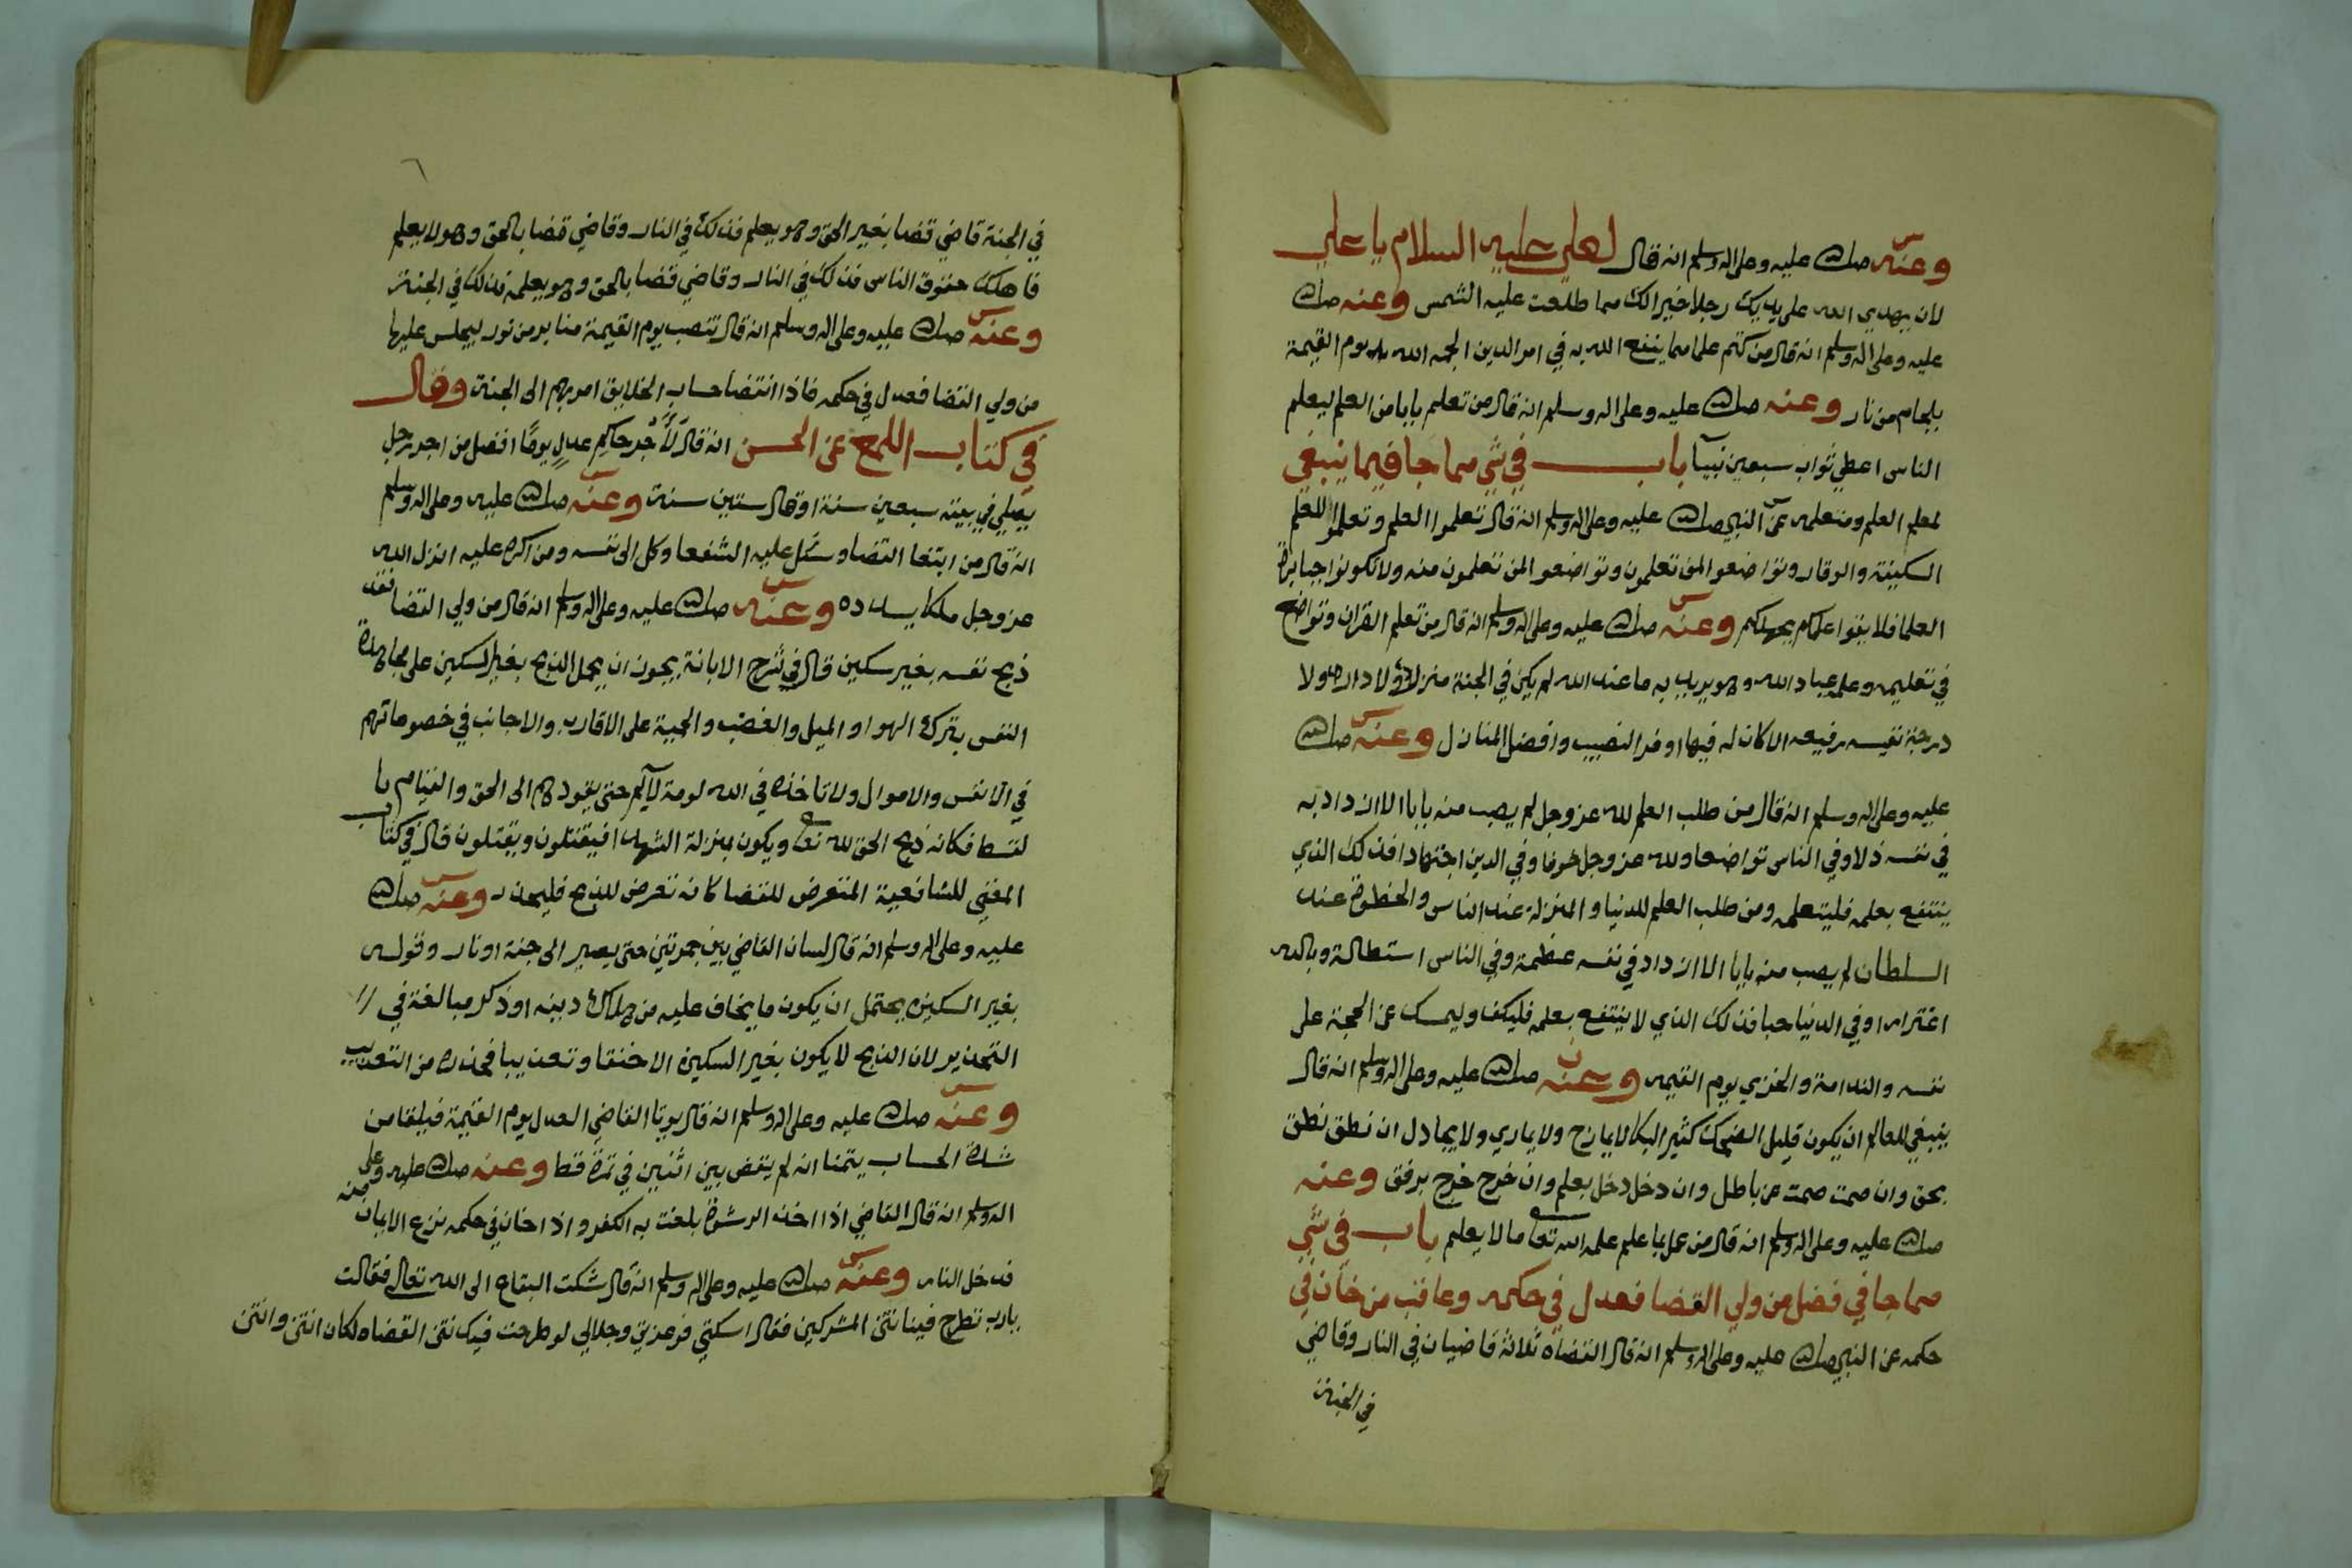 وعنه صلى الله عليه وعلى اله وسلم انه قال لعلي عليه السلام يا علي
لان يهدي الله على يديك رجلا خير الك مما طلعت عليه الشمس وعنه صلى الله
عليه وعلى اله وسلم انه قال من كتم علما مما ينفع الله به في امر الدين الجمه الله يوم القيمة
بلجام من نار وعنه صلى الله عليه وعلى اله وسلم انه قال من تعلم بابا من العلم ليعلم
الناس اعطي ثواب سبعين نبيا باب في شي مما جا فيما ينبغي
لمعلم العلم ومتعلمه عن النبي صلى الله عليه وعلى اله وسلم انه قال تعلموا العلم وتعلموا للعلم
السكينة والوقار وتواضعوا لمن تعلمون وتواضعوا لمن تتعلمون منه ولا تكونوا جبابرة
العلما فلا يقوا علمكم بجهلكم وعنه صلى الله عليه وعلى اله وسلم انه قال من تعلم القران وتواضع
في تعليمه وعلم عباد الله وهو يريد به ما عند الله لم يكن في الجنة منزلة ولا دار ولا
درجة نفيسه رفيعه الا كان له فيها اوفر النصيب وافضل المنازل وعنه صلى الله
عليه وعلى اله وسلم انه قال من طلب العلم لله عز وجل لم يصب منه بابا الا ازداد به
في نفسه ذلا وفي الناس تواضعا ولله عز وجل خوفا وفي الدين اجتهادا فذلك الذي
ينتفع بعلمه فليتعلمه ومن طلب العلم للدنيا والمنزلة عند الناس والحظوة عند
السلطان لم يصب منه بابا الا ازداد في نفسه عظمة وفي الناس استطالة وبالله
اغترارا وفي الدنيا حبا فذلك الذي لا ينتفع بعلمه فليكف وليمسك عن الحجة على
نفسه والندامة والخزي يوم القيمه وعنه صلى الله عليه وعلى اله وسلم انه قال
ينبغي للعالم ان يكون قليل الضحك كثير البكا لا يمازح ولا يماري ولا يجادل ان نطق نطق
بحق وان صمت صمت عن باطل وان دخل دخل بعلم وان خرج خرج برفق وعنه
صلى الله عليه وعلى اله وسلم انه قال من عمل بما علم علمه الله تعا ما لا يعلم باب في شي
مما جا في فضل من ولي القضا فعدل في حكمه وعاقب من خان في
حكمه عن النبي صلى الله عليه وعلى اله وسلم انه قال القضاه ثلاثة قاضيان في النار وقاضي
في الجنة
في الجنة قاضي قضا بغير الحق وهو يعلم فذلك في النار وقاضي قضا بالحق وهو لا يعلم
فاهلك حقوق الناس فذلك في النار وقاضي قضا بالحق وهو يعلم فذلك في الجنة
وعنه صلى الله عليه وعلى اله وسلم انه قال تنصب يوم القيمة منابر من نور ليجلس عليها
من ولي القضا فعدل في حكمه فاذا انتضا حساب الخلايق امر بهم الى الجنة وقال
في كتاب اللمع عن الحسن انه قال لأجر حاكم عدل يوما افضل من اجر رجل
يصلي في بيته سبعين سنة او قال ستين سنة وعنه صلى الله عليه وعلى اله وسلم
انه قال من ابتغا القضا وسئل عليه الشفعا وكل الى نفسه ومن اكره عليه انزل الله
عز وجل ملكا يسدده وعنه صلى الله عليه وعلى اله وسلم انه قال من ولي القضا فقد
ذبح نفسه بغير سكين قال في شرح الابانة يجوز ان يحمل الذبح بغير السكين على مجاهدة
النفس بترك الهوا والميل والغضب والحمية على الاقارب والاجانب في خصوماتهم
في الانفس والاموال ولا تاخذه في الله لومة لآيم حتى يقودهم الى الحق والقيام با
لقسط فكانه ذبح الحق لله تعا ويكون بمنزلة الشهدا فيقتلون ويقتلون قال في كتاب
المغني للشافعية المتعرض للقضا كانه تعرض للذبح فليحذر وعنه صلى الله
عليه وعلى اله وسلم انه قال لسان القاضي بين جمرتين حتى يصير الى جنة او نار وقوله
بغير السكين يحتمل ان يكون ما يخاف عليه من هلاك دينه او ذكر مبالغة في
التحذير لان الذبح لا يكون بغير السكين الا خنقا وتعذيبا فحذره من التعذيب
وعنه صلى الله عليه وعلى اله وسلم انه قال يوتا القاضي العدل يوم القيمة فيلقا من
شدة الحساب يتمنا انه لم يقض بين اثنين في تمرة قط وعنه صلى الله عليه وعلى
اله وسلم انه قال القاضي اذا اخذ الرشوة بلغت به الكفر واذا خان في حكمه نزع الايمان منه
فدخل النار وعنه صلى الله عليه وعلى اله وسلم انه قال شكت البقاع الى الله تعالى فقالت
يارب تطرح فينا نتن المشركين فقال اسكتي فوعزتي وجلالي لو طرحت فيك نتن القضاه لكان انتن وانتن